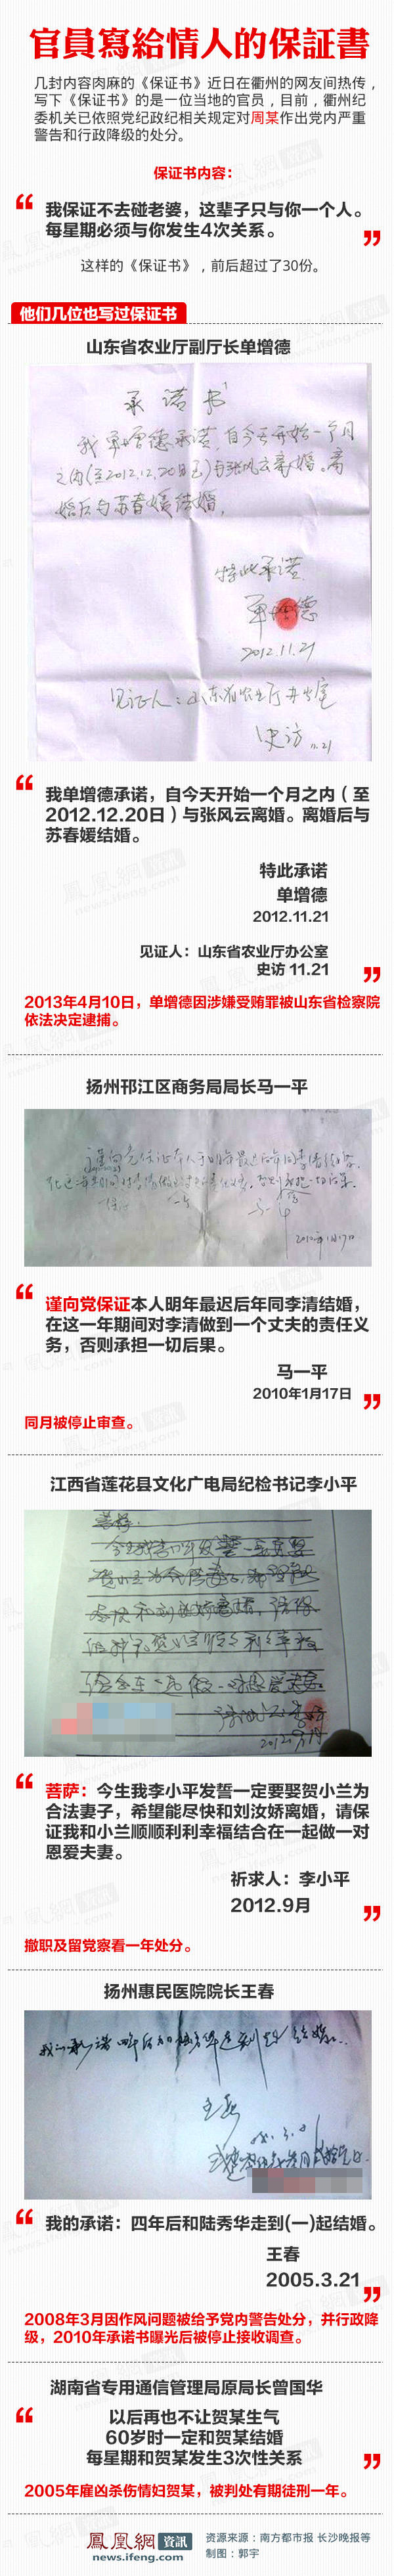 官員寫給情人的保証書
几封内容肉麻的《保证书》近日在衢州的网友间热传，
写下《保证书》的是一位当地的官员，目前，衢州纪
委机关已依照党纪政纪相关规定对周某作出党内严重
警告和行政降级的处分。
保证书内容：
“我保证不去碰老婆，这辈子只与你一个人。
每星期必须与你发生4次关系。”
这样的《保证书》，前后超过了30份。
他们几位也写过保证书
山东省农业厅副厅长单增德
承诺书
我单增德承诺，自今天开始一个月
之内（至2012.12.20日）与张风云离婚。离
婚后与苏春媛结婚。
特此承诺
单增德
2012.11.21
见证人：山东省农业厅办公室
史访 11.21
“我单增德承诺，自今天开始一个月之内（至
2012.12.20日）与张风云离婚。离婚后与
苏春媛结婚。
特此承诺
单增德
2012.11.21
见证人：山东省农业厅办公室
史访 11.21”
2013年4月10日，单增德因涉嫌受贿罪被山东省检察院
依法决定逮捕。
扬州邗江区商务局局长马一平
谨向党保证本人于明年最迟后年同李清结婚.
2010年1月17日
“谨向党保证本人明年最迟后年同李清结婚，
在这一年期间对李清做到一个丈夫的责任义
务，否则承担一切后果。
马一平
2010年1月17日”
同月被停止审查。
江西省莲花县文化广电局纪检书记李小平
菩萨：
“菩萨：今生我李小平发誓一定要娶贺小兰为
合法妻子，希望能尽快和刘汝娇离婚，请保
证我和小兰顺顺利利幸福结合在一起做一对
恩爱夫妻。
祈求人：李小平
2012.9月”
撤职及留党察看一年处分。
扬州惠民医院院长王春
我的承诺 四年后和陆秀华走到一起结婚.
王春
“我的承诺：四年后和陆秀华走到(一)起结婚。
王春
2005.3.21”
2008年3月因作风问题被给予党内警告处分，并行政降
级，2010年承诺书曝光后被停止接收调查。
湖南省专用通信管理局原局长曾国华
“以后再也不让贺某生气
60岁时一定和贺某结婚
每星期和贺某发生3次性关系”
2005年雇凶杀伤情妇贺某，被判处有期徒刑一年。
鳳凰網資訊
news.ifeng.com
资源来源：南方都市报 长沙晚报等
制图：郭宇